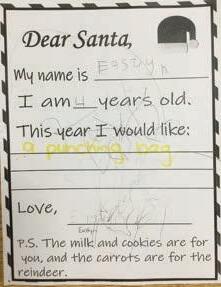 Dear Santa,
My name is Eashyn
I am 4 years old.
This year I would like:
a punching bag
Love,
P.S. The milk and cookies are for
you, and the carrots are for the
reindeer.